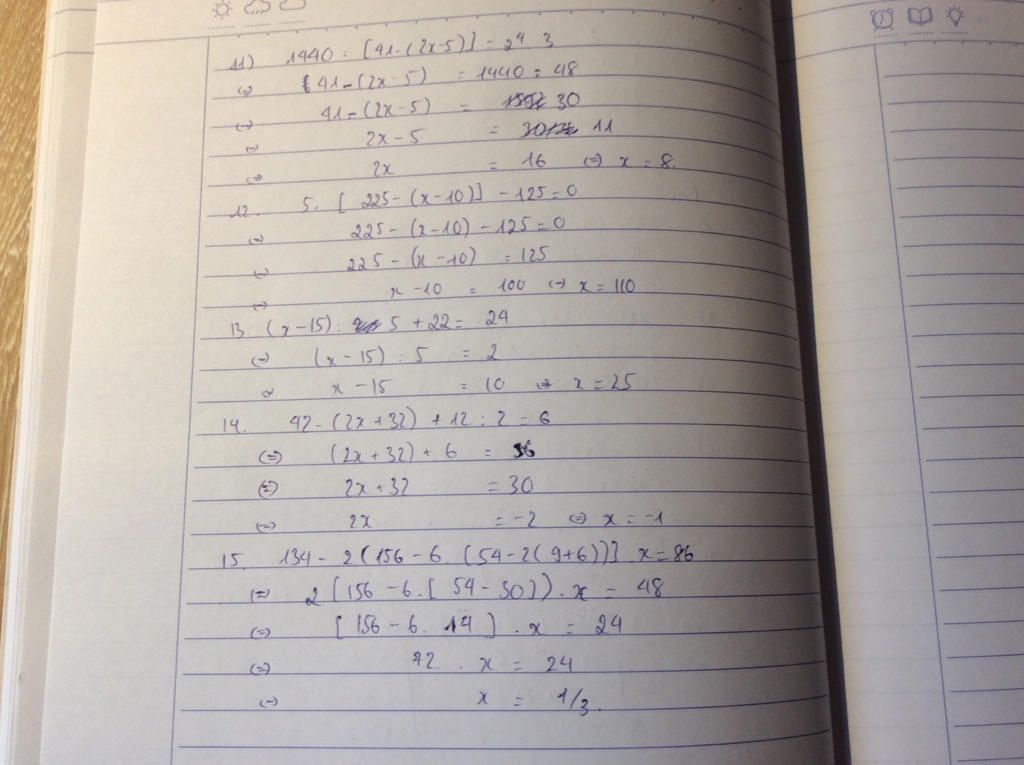 11) 1440 : [41-(2x-5)] = 2⁴ 3
(=) 41-(2x-5) = 1440 : 48
(=) 41-(2x-5) = 30
(=) 2x-5 = 11
(=) 2x = 16 (=) x = 8.
12. 5. [225-(x-10)] - 125 = 0
(=) 225-(x-10) - 125 = 0
(=) 225-(x-10) = 125
(=) x-10 = 100 (=) x = 110
13. (x-15) : 5 + 22 = 24
(=) (x-15) : 5 = 2
x-15 = 10 x = 25
14. 42-(2x+32) + 12 : 2 = 6
(=) (2x+32) + 6 = 36
(=) 2x+32 = 30
(=) 2x = -2 (=) x = -1
15. 134 - 2(156-6.(54-2(9+6))]. x = 86
(=) 2[156-6.[54-30]). x = 48
(=) [156-6. 14]. x = 24
(=) 72 . x = 24
(=) x = 1/3.